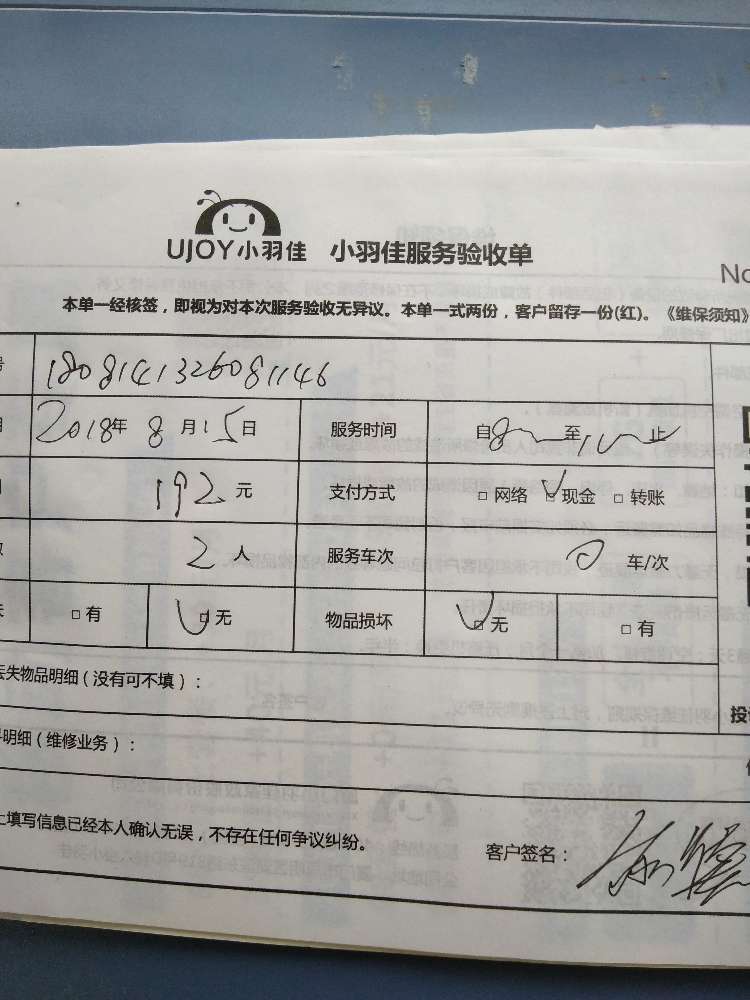 UJOY小羽佳 小羽佳服务验收单
No
本单一经核签，即视为对本次服务验收无异议。本单一式两份，客户留存一份(红)。《维保须知》
号 1808141326081146
期 2018年 8 月 15 日 服务时间 自 8 至 10 止
192 元 支付方式 □ 网络 ☑ 现金 □ 转账
数 2 人 服务车次 0 车/次
失 □ 有 ☑ 无 物品损坏 ☑ 无 □ 有
丢失物品明细（没有可不填）：
投诉
件明细（维修业务）：
上填写信息已经本人确认无误，不存在任何争议纠纷。 客户签名：